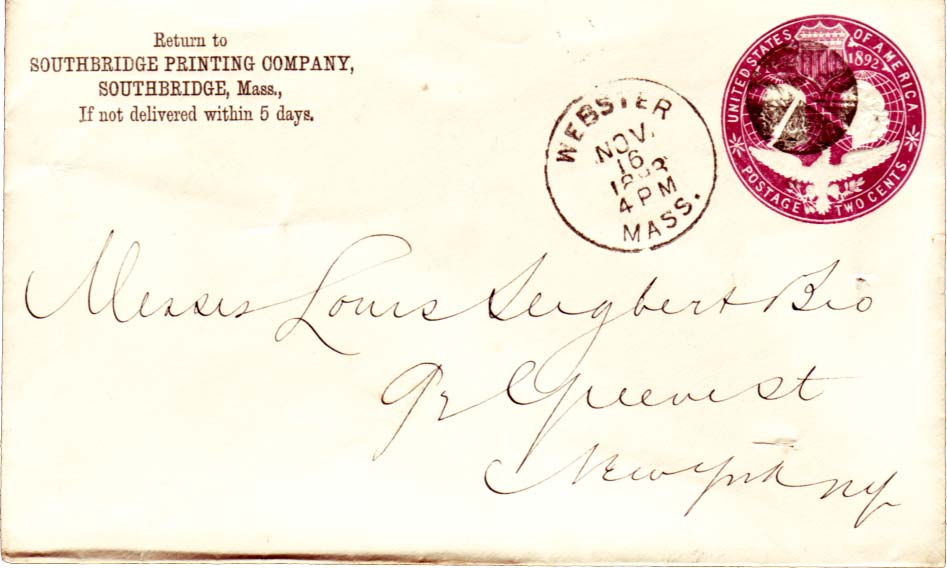 Return to
SOUTHBRIDGE PRINTING COMPANY,
SOUTHBRIDGE, Mass.,
If not delivered within 5 days.
WEBSTER
NOV.
16
1893
4 PM
MASS.
UNITED STATES OF AMERICA
1892
POSTAGE TWO CENTS
Messrs Louis Seigbert & Bro
Greene st
New York NY